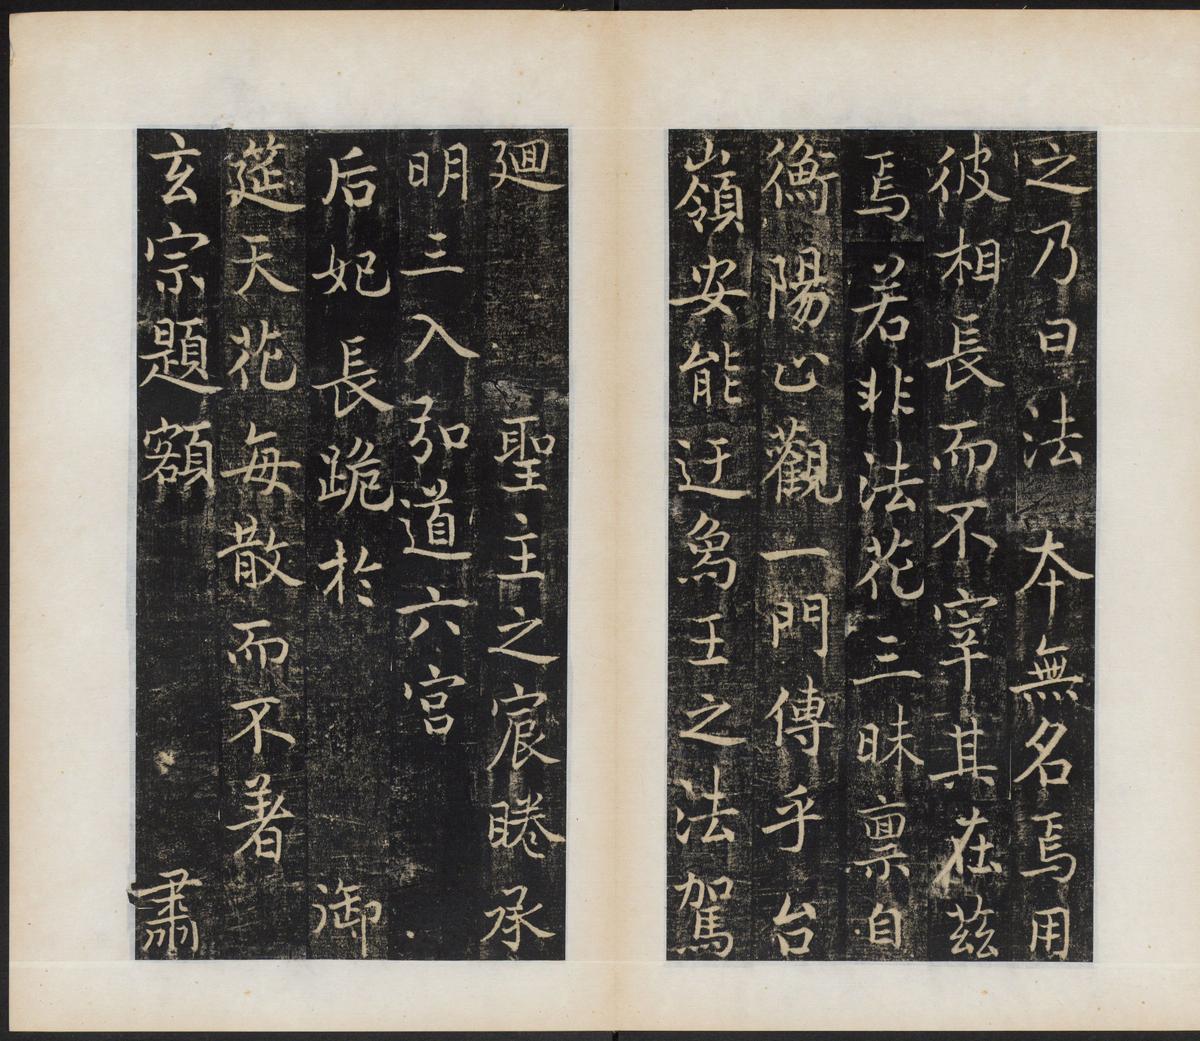 之乃曰法本無名焉用
彼相長而不宰其在兹
焉若非法花三昧禀自
衡陽止觀一門傳乎台
嶺安能迂為王之法駕
迴聖主之宸睠承
明三入弘道六宮
后妃長跪於御
莚天花每散而不著
玄宗題額肅